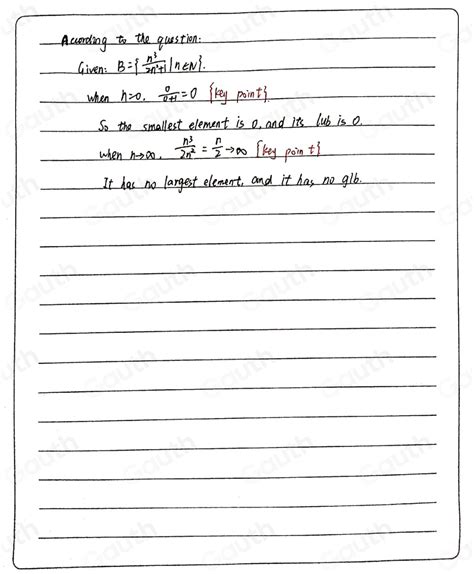 According to the question:
Given: B={n³/2n²+1 | n∈N}.
when n=0, 0/0+1=0 {key point}.
So the smallest element is 0, and its lub is 0.
when n→∞, n³/2n²=n/2→∞ {key point}
It has no largest element, and it has no glb.
Gauth